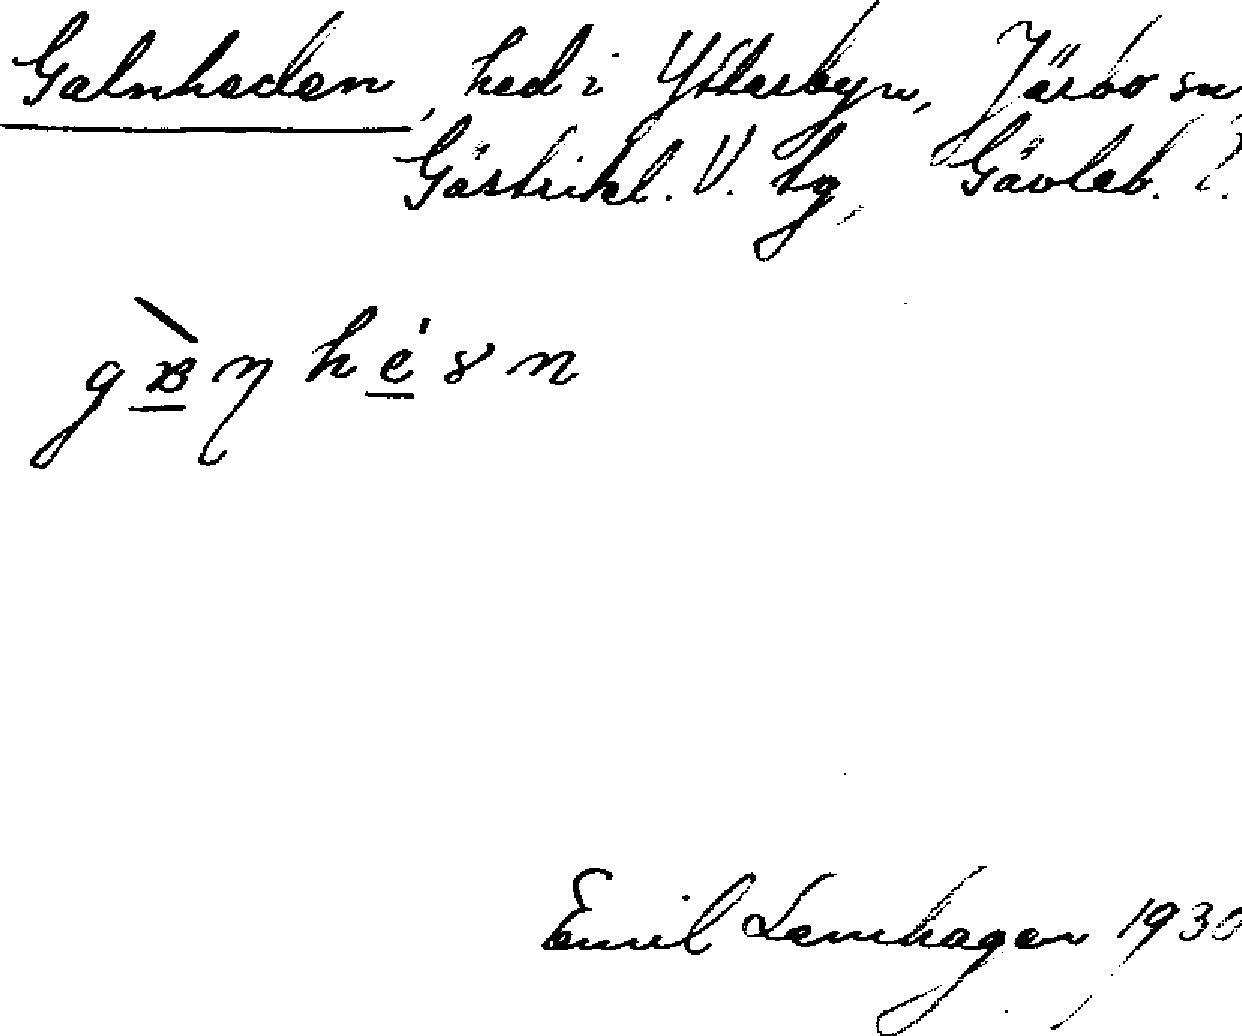 Galnheden, hed i Ytterbyn, Järbo sn,
Gästrikl. V. tg, Gävleb. l.
Emil Lemhagen, 1930